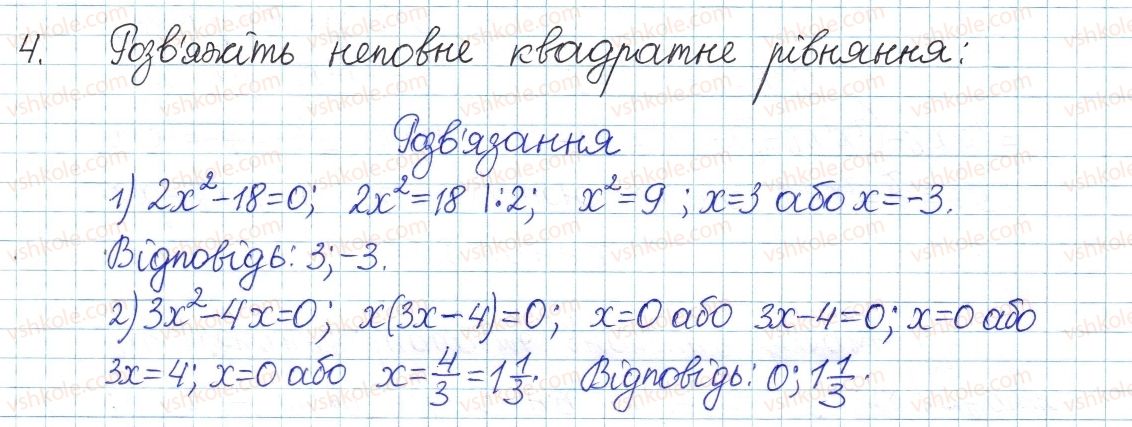 4. Розв'яжіть неповне квадратне рівняння:
Розв'язання
1) 2x²-18=0; 2x²=18 |:2; x²=9; x=3 або x=-3.
Відповідь: 3; -3.
2) 3x²-4x=0; x(3x-4)=0; x=0 або 3x-4=0; x=0 або
3x=4; x=0 або x=4/3=1 1/3. Відповідь: 0; 1 1/3.